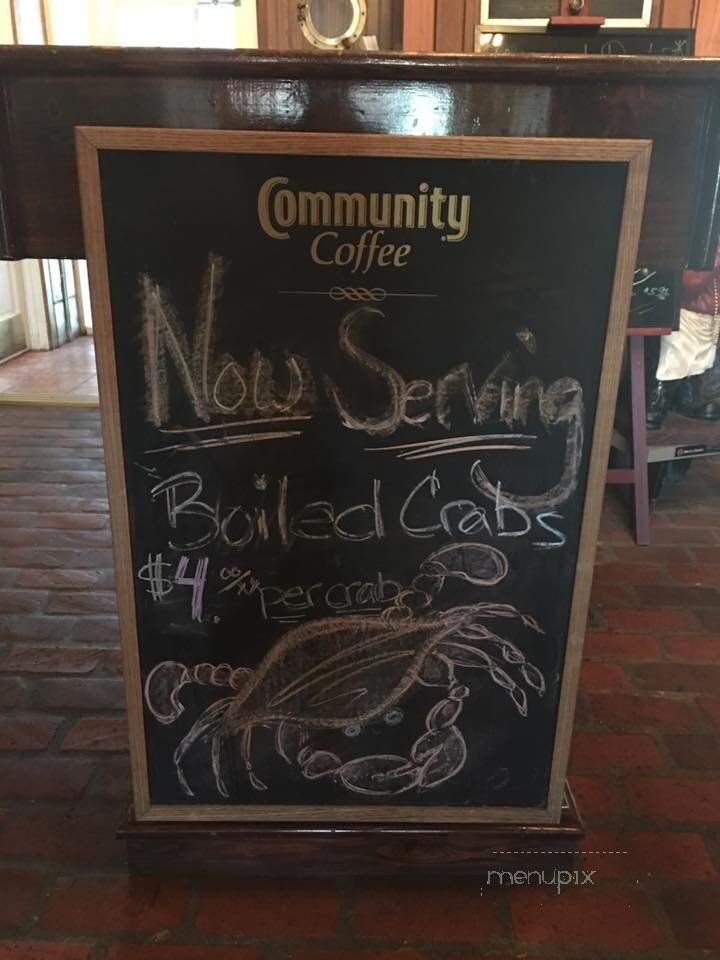 Community
Coffee
Now Serving
Boiled Crabs
$4 00/xx per crab
menupix